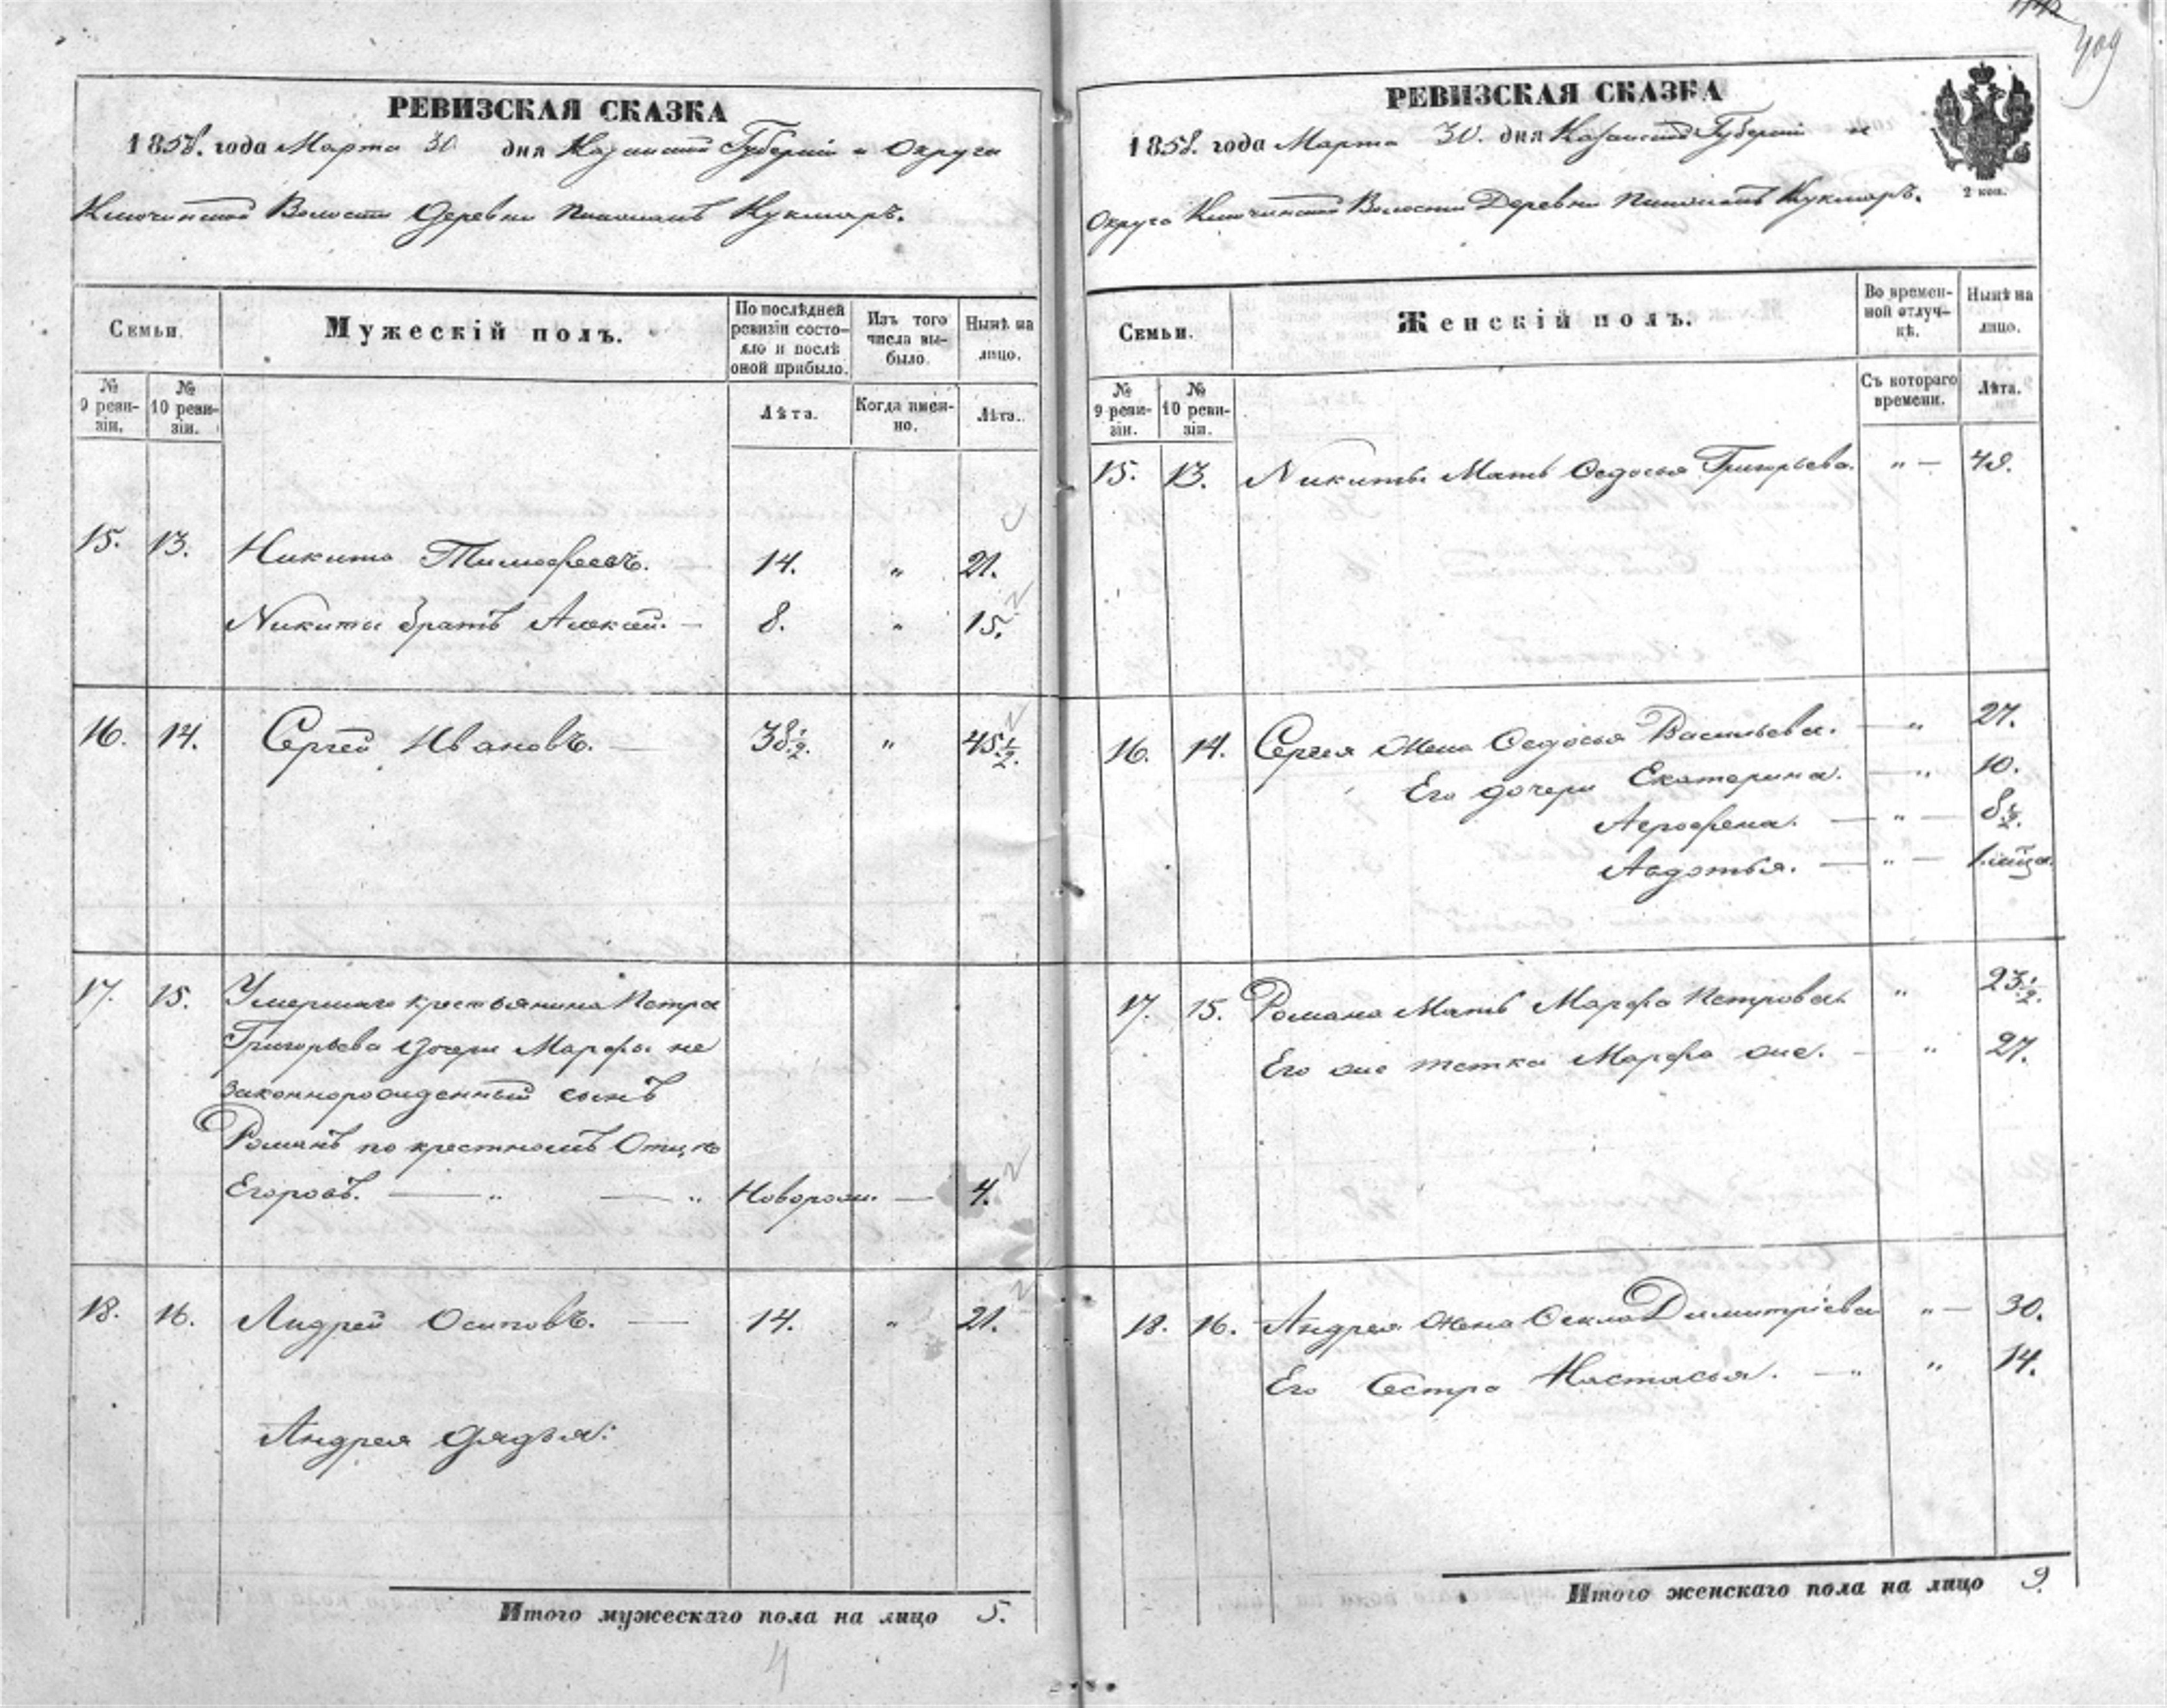 РЕВИЗСКАЯ СКАЗКА
1858. года Марта 30 дня Казанской Губернии и Округа
Ключинской Волости Деревни Кукморъ.
Семьи.
Мужескій полъ.
По послѣдней ревизіи состояло и послѣ оной прибыло.
Изъ того числа выбыло.
Нынѣ на лицо.
№ 9 ревизіи.
№ 10 ревизіи.
Лѣта.
Когда именно.
Лѣта.
15. 13. Никита Тимофеевъ. 14. " 21.
Никиты братъ Алексей. — 8. " 15.
16. 14. Сергей Ивановъ. — 38 1/2. " 45 1/2.
17. 15. Умершаго крестьянина Петра
Григорьева дочери Марфы не
законнорожденный сынъ
Романъ по крестномъ Отцѣ
Егоровъ. — " — " Новорож. — 4.
18. 16. Андрей Осиповъ. — 14. " 21.
Андрея дядья:
Итого мужескаго пола на лицо 5.
4
409
РЕВИЗСКАЯ СКАЗКА
1858. года Марта 30. дня Казанской Губерніи и
2 коп.
Округа Ключинской Волости Деревни Кукморъ.
Семьи.
Женскій полъ.
Во временной отлучкѣ.
Нынѣ на лицо.
№ 9 ревизіи.
№ 10 ревизіи.
Съ котораго времени.
Лѣта.
15. 13. Никиты Мать Федосья Григорьева. " — 49.
16. 14. Сергея Жена Федосья Васильева. — " 27.
Его дочери Екатерина. — " 10.
Агрофена. — " — 8 1/2.
Авдотья. — " — 1.
17. 15. Романа Мать Марфа Петрова. " 23 1/2.
Его же тетка Марфа же. — " 27.
18. 16. Андрея Жена Фекла Димитріева " — 30.
Его Сестра Настасья. — " " 14.
Итого женскаго пола на лицо 9.